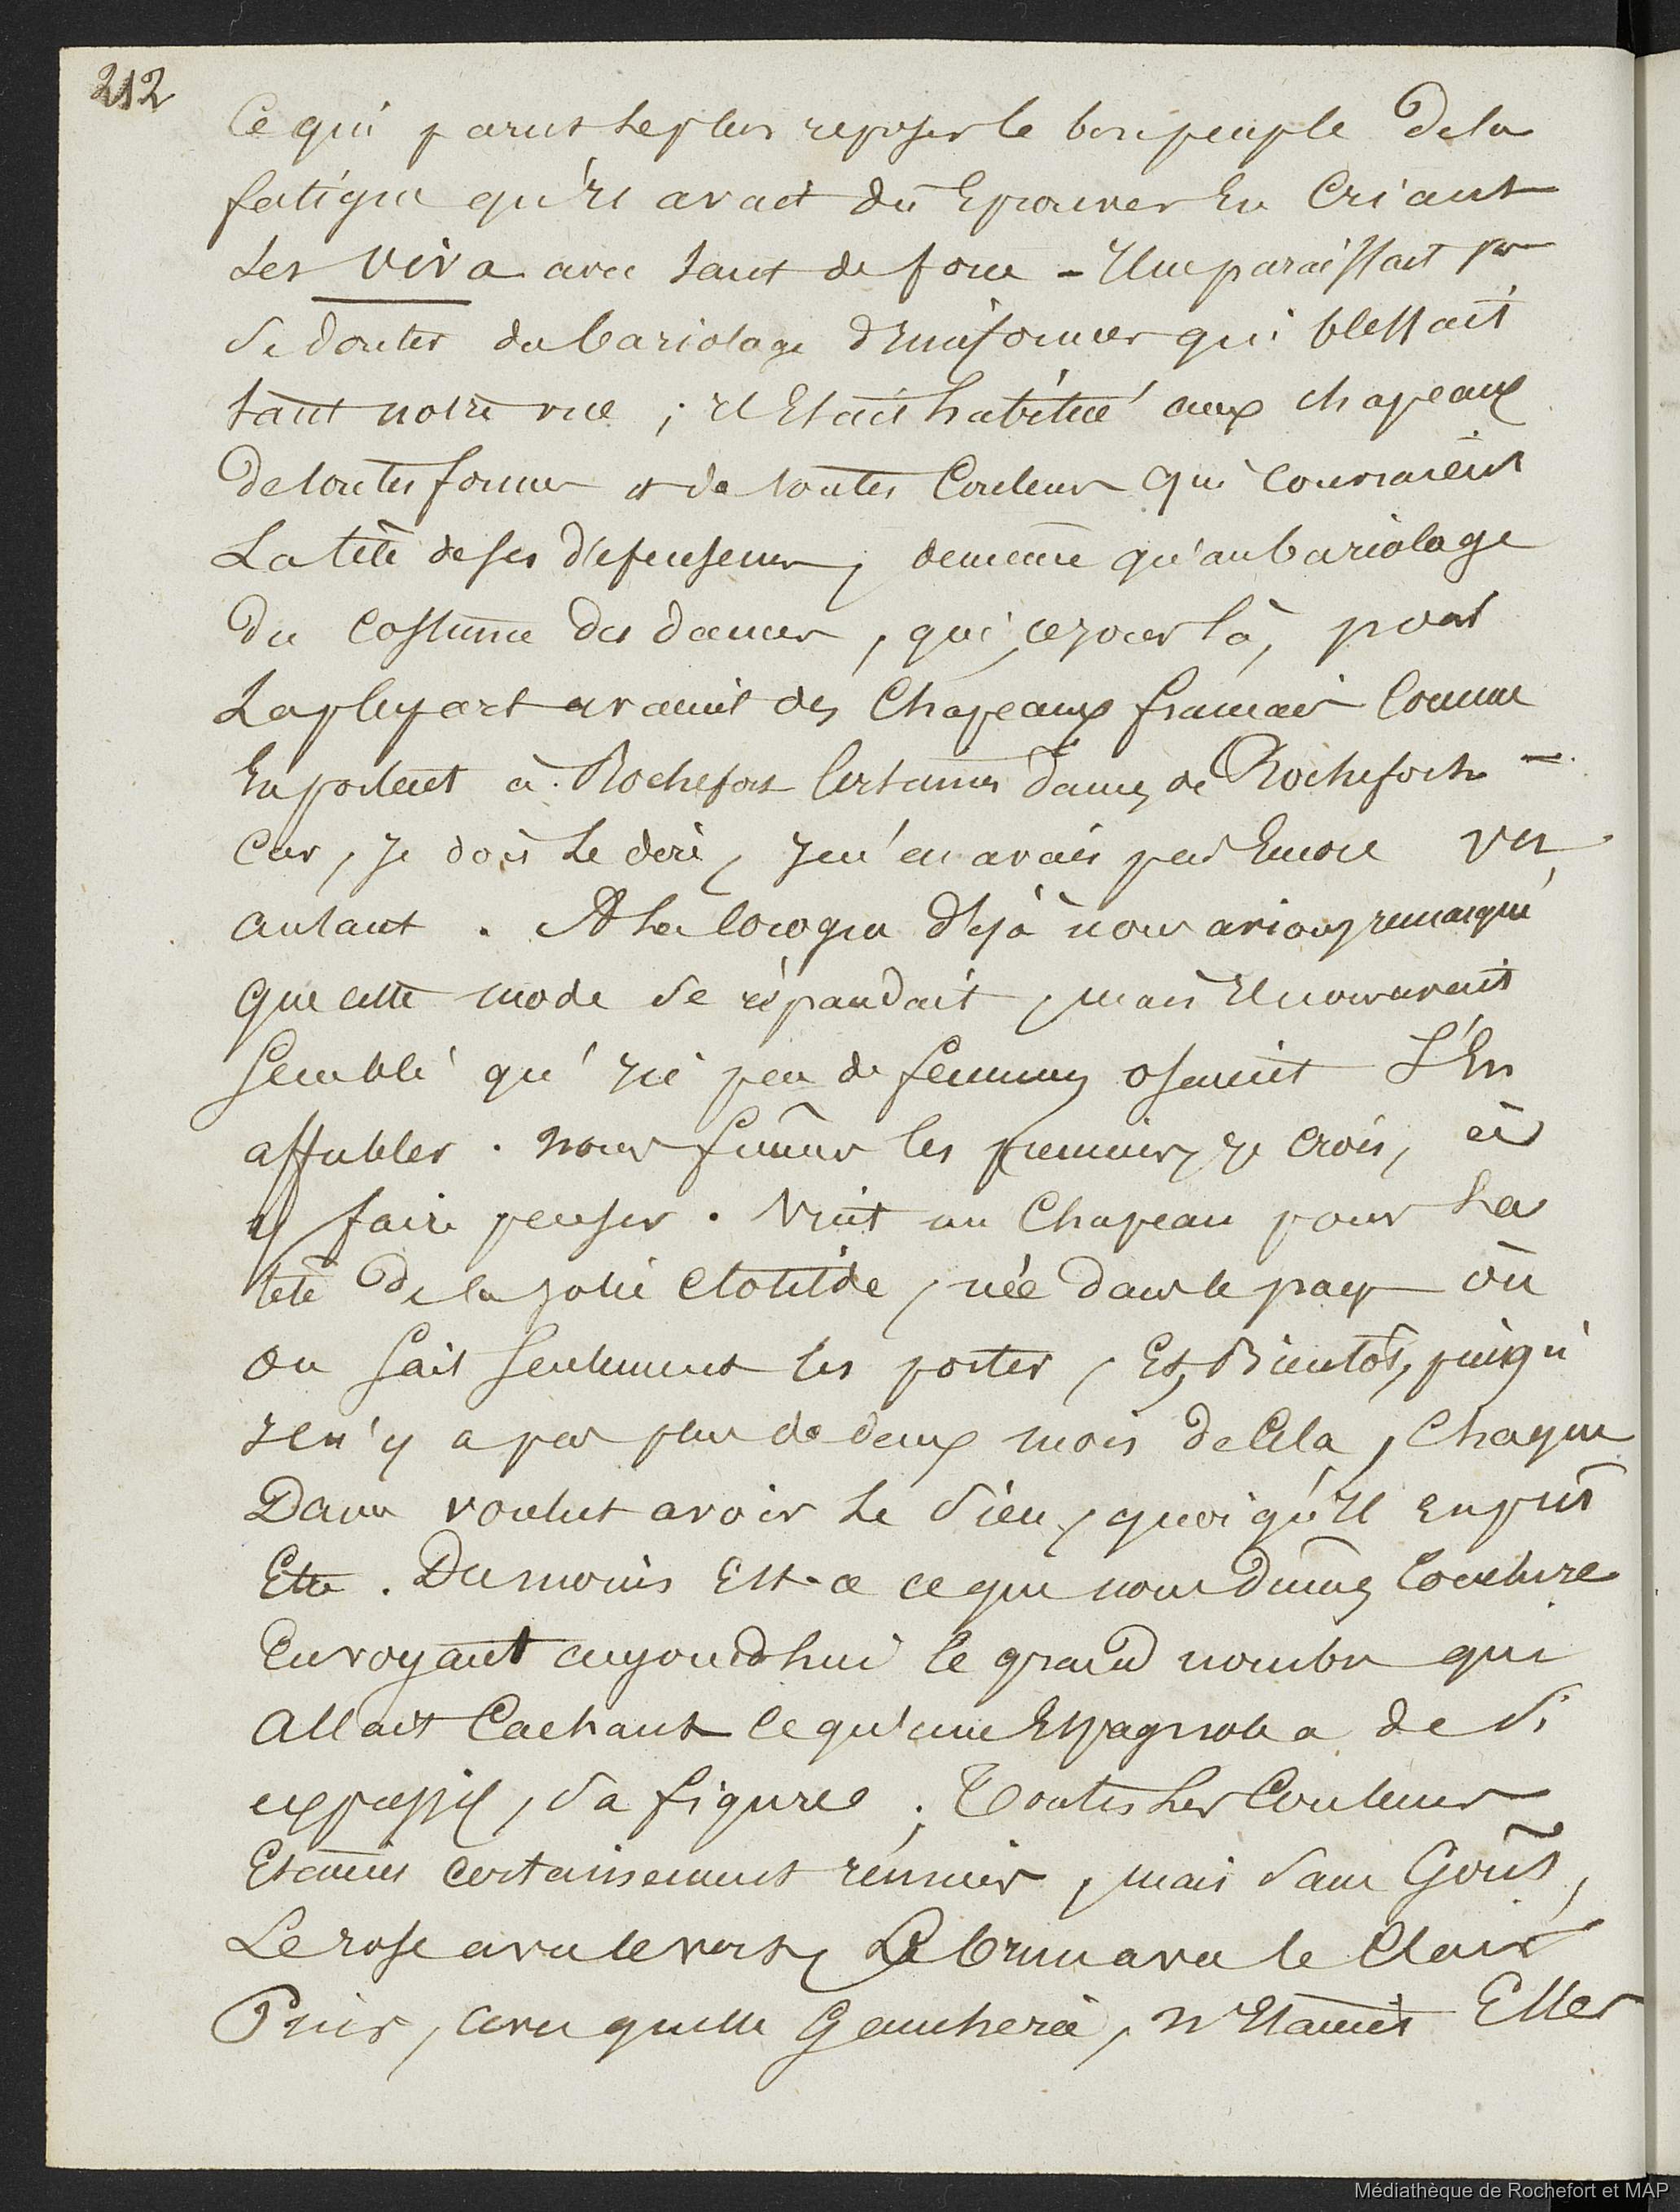 212
Ce qui parut le plus reposer le bon peuple de la
fatigue qu'il avait dû Eprouver En Criant
Les viva avec tant de force - Il ne paraissait pas
Se douter du bariolage d'uniformes qui blessait
tant notre vue ; il Etait habitué aux chapeaux
de toutes formes et de toutes Couleurs qui Couvraient
La tête de ses défenseurs, de même qu'au bariolage
du Costume des dames, qui, ce jour là, pour
La plupart avaient des Chapeaux français Comme
En portent à Rochefort Certaines dames de Rochefort -
Car, je dois le dire, je n'en avais pas Encore vu
autant. A la Corogne déjà nous avions remarqué
que cette mode se répandait, mais il nous avait
Semblé qu'ici peu de femmes osaient S'En
affubler. nous fûmes les premiers, je crois, à
y faire penser. Vint un Chapeau pour La
tête de la jolie Clotilde, née dans le pays où
on sait seulement les porter, Et, Bientôt, puisqu'
il n'y a pas plus de deux mois de Cela, Chaque
Dame voulut avoir le Sien, quoiqu'il en pût
Etre. Du moins Est-ce ce que nous dûmes Conclure
En voyant aujourd'hui le grand nombre qui
allait Cachant Ce qu'une Espagnole a de Si
expressif, Sa figure. Toutes Les Couleurs
Etaient certainement réunies, mais Sans Goût,
Le rose avec le vert, Le brun avec le Clair
Puis, avec quelle Gaucherie, n'Etaient Elles
Médiathèque de Rochefort et MAP